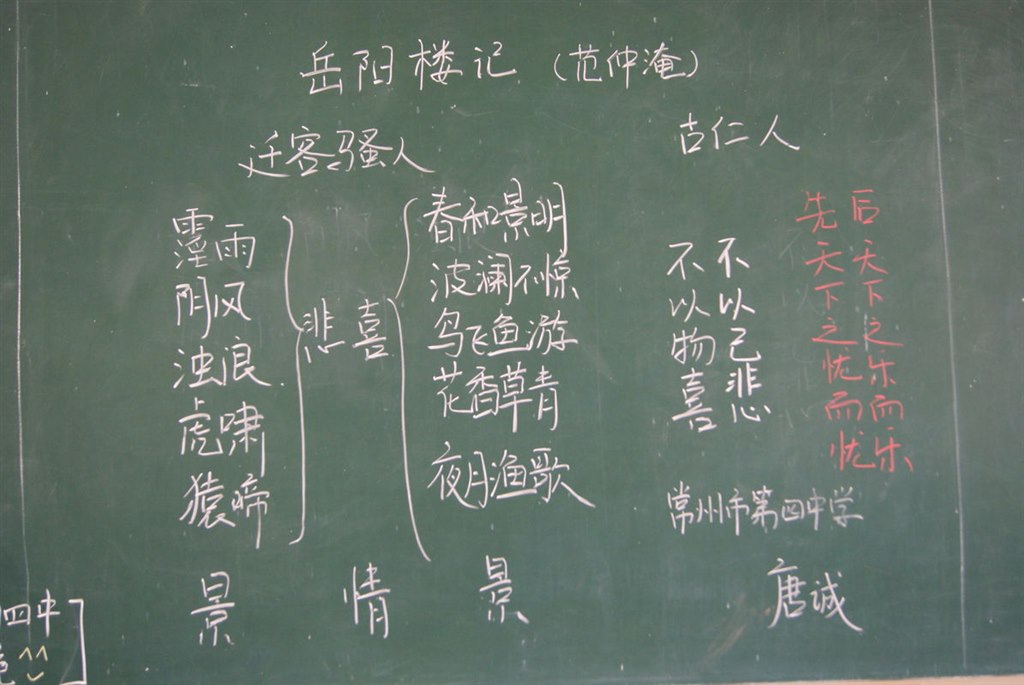 岳阳楼记（范仲淹）
迁客骚人
古仁人
霪雨
阴风
浊浪
虎啸
猿啼
悲喜
春和景明
波澜不惊
鸟飞鱼游
花香草青
夜月渔歌
不以物喜
不以己悲
先天下之忧而忧
后天下之乐而乐
常州市第四中学
唐诚
景 情 景
四中